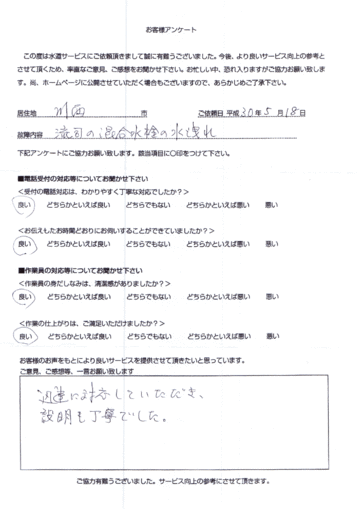 お客様アンケート
この度は水道サービスにご依頼頂きまして誠に有難うございました。今後、より良いサービス向上の参考と
させて頂くため、率直なご意見、ご感想をお聞かせ下さい。お忙しい中、恐れ入りますがご協力お願い致しま
す。尚、ホームページに公開させていただく場合もございますので、あらかじめご了承下さい。
居住地 川西 市 ご依頼日 平成 30年 5月 18日
故障内容 流司の混合水栓の水洩れ
下記アンケートにご協力お願い致します。該当項目に〇印をつけて下さい。
■電話受付の対応等についてお聞かせ下さい
<受付の電話対応は、わかりやすく丁寧な対応でしたか？>
良い どちらかといえば良い どちらでもない どちらかといえば悪い 悪い
<お伝えしたお時間どおりにお伺いすることができていましたか？>
良い どちらかといえば良い どちらでもない どちらかといえば悪い 悪い
■作業員の対応等についてお聞かせ下さい
<作業員の身だしなみは、清潔感がありましたか？>
良い どちらかといえば良い どちらでもない どちらかといえば悪い 悪い
<作業の仕上がりは、ご満足いただけましたか？>
良い どちらかといえば良い どちらでもない どちらかといえば悪い 悪い
お客様のお声をもとにより良いサービスを提供させて頂きたいと思っています。
ご意見、ご感想等、一言お願い致します
迅速に対応していただき、
説明も丁寧でした。
ご協力有難うございました。サービス向上の参考にさせて頂きます。